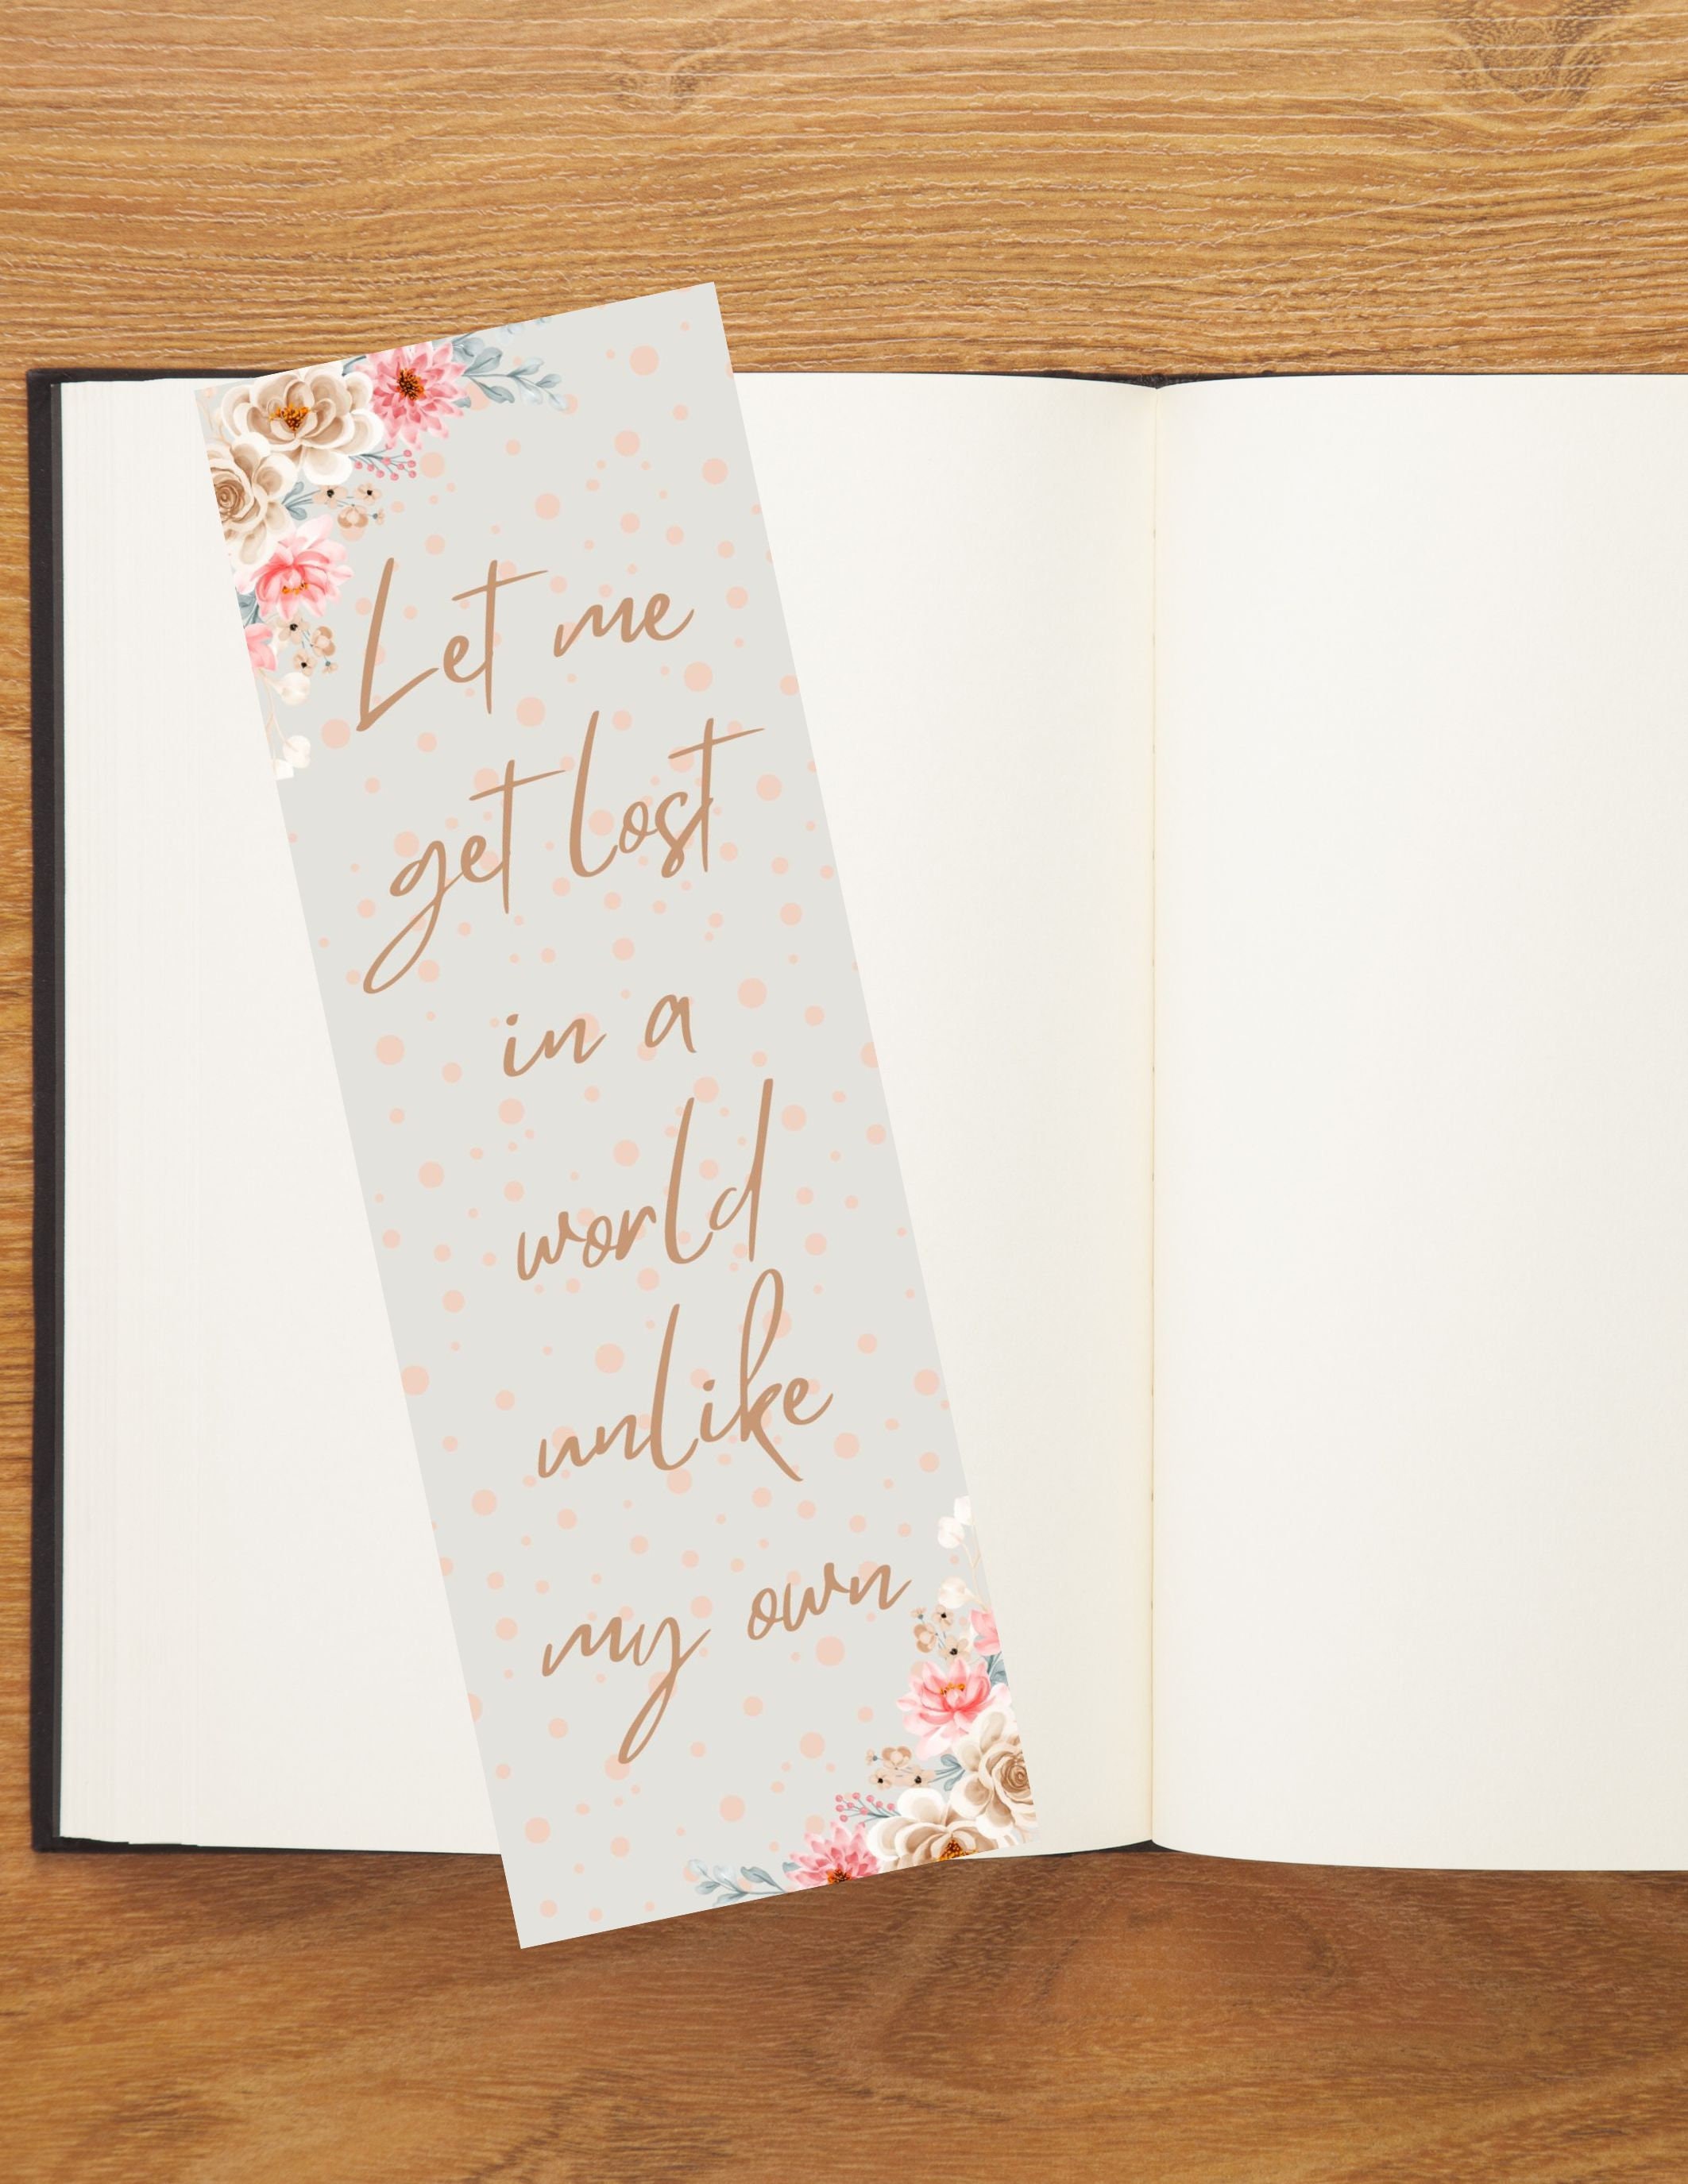 Let me
get lost
in a
world
unlike
my own